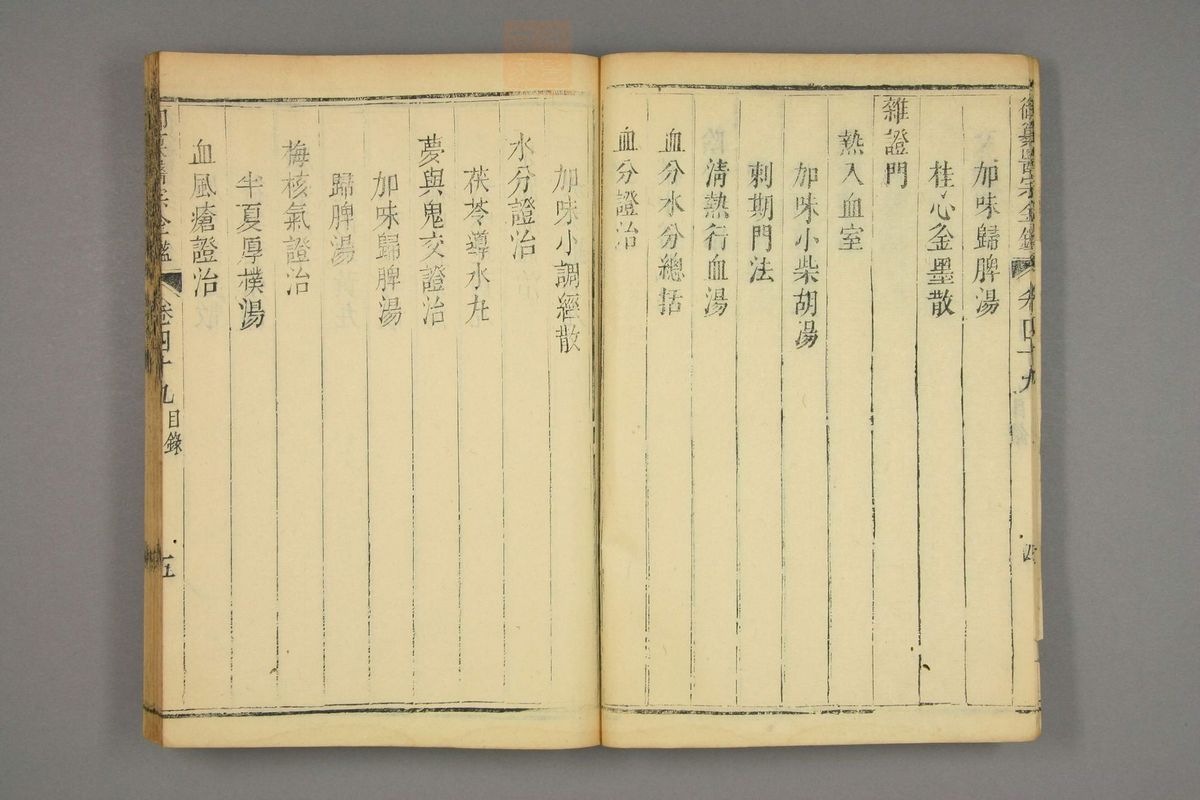 御纂醫宗金鑑 卷四十九 四
加味歸脾湯
桂心釡墨散
雜證門
熱入血室
加味小柴胡湯
刺期門法
清熱行血湯
血分水分總括
血分證治
加味小調經散
水分證治
茯苓導水丸
夢與鬼交證治
加味歸脾湯
歸脾湯
梅核氣證治
半夏厚樸湯
血風瘡證治
卷四十九 目錄 五